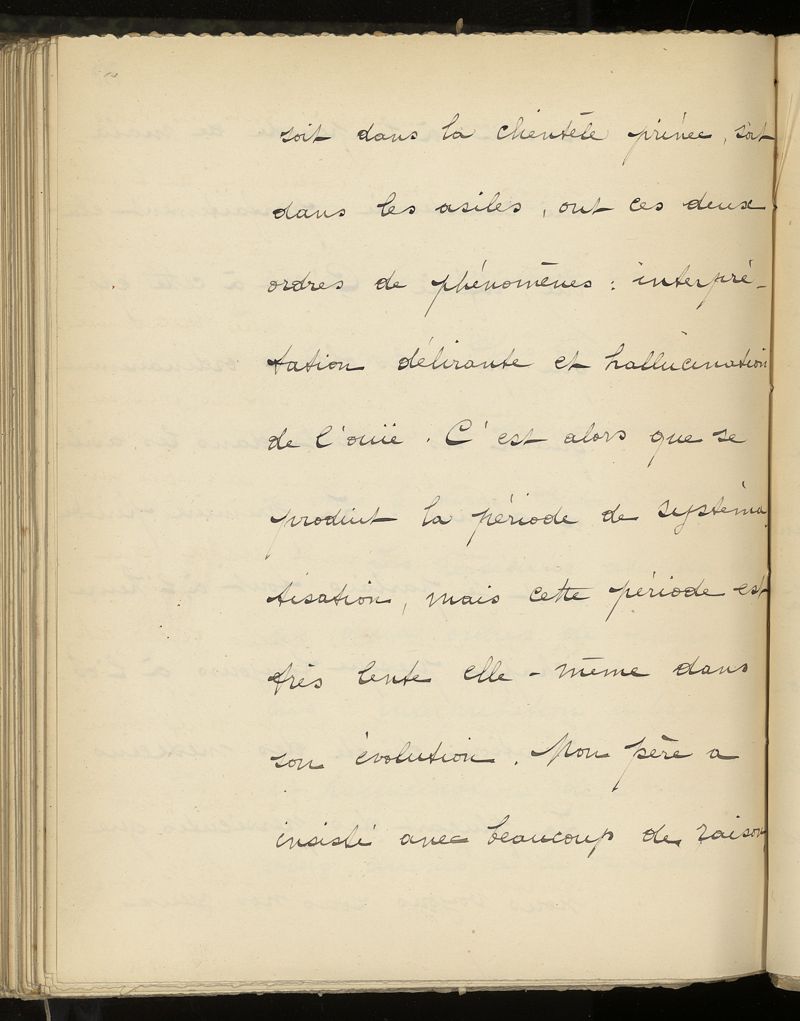 soit dans la clientèle privée, soit
dans les asiles, ont ces deux
ordres de phénomènes : interpré-
tation délirante et hallucination
de l'ouïe. C'est alors que se
produit la période de systéma
tisation, mais cette période est
très lente elle-même dans
son évolution. Mon père a
insisté avec beaucoup de raison